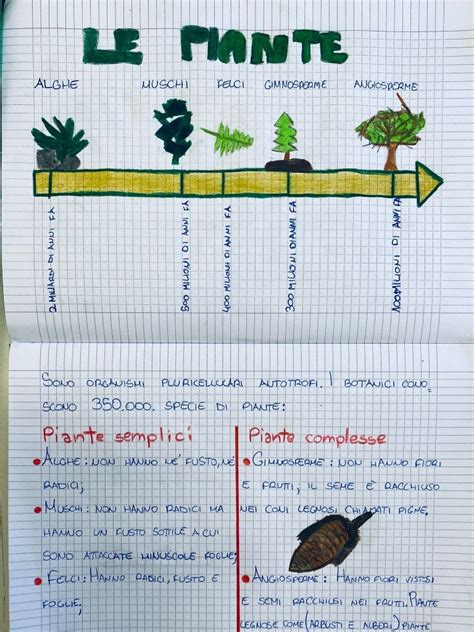 LE PIANTE
ALGHE MUSCHI FELCI GIMNOSPERME ANGIOSPERME
2 MILIARDI DI ANNI FA
500 MILIONI DI ANNI FA
400 MILIONI DI ANNI FA
300 MILIONI DI ANNI FA
100 MILIONI DI ANNI FA
SONO ORGANISMI PLURICELLULARI AUTOTROFI. I BOTANICI CONO=
SCONO 350.000. SPECIE DI PIANTE:
Piante semplici
• ALGHE: NON HANNO NE' FUSTO, NE'
RADICI;
• MUSCHI: NON HANNO RADICI MA
HANNO UN FUSTO SOTTILE A CUI
SONO ATTACCATE MINUSCOLE FOGLIE;
• FELCI: HANNO RADICI, FUSTO E
FOGLIE;
Piante complesse
• GIMNOSPERME: NON HANNO FIORI
E FRUTTI, IL SEME È RACCHIUSO
NEI CONI LEGNOSI CHIAMATI PIGNE.
• ANGIOSPERME: HANNO FIORI VISTOSI
E SEMI RACCHIUSI NEI FRUTTI. PIANTE
LEGNOSE COME (ARBUSTI E ALBERI) PIANTE